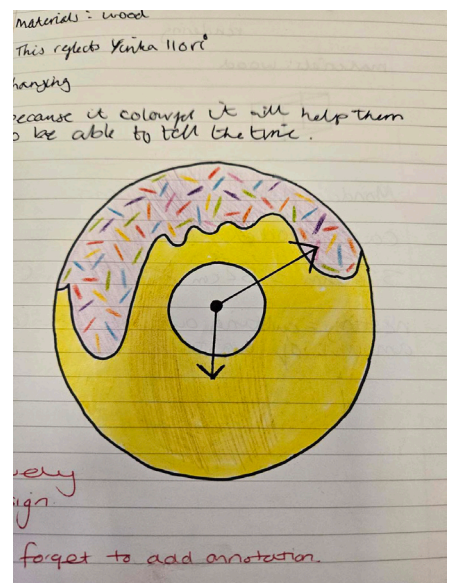 Materials: wood
This reflects Yinka Ilori
hanging
ecause it colourful it will help them
o be able to tell the time.
vely
ign
forget to add annotation.